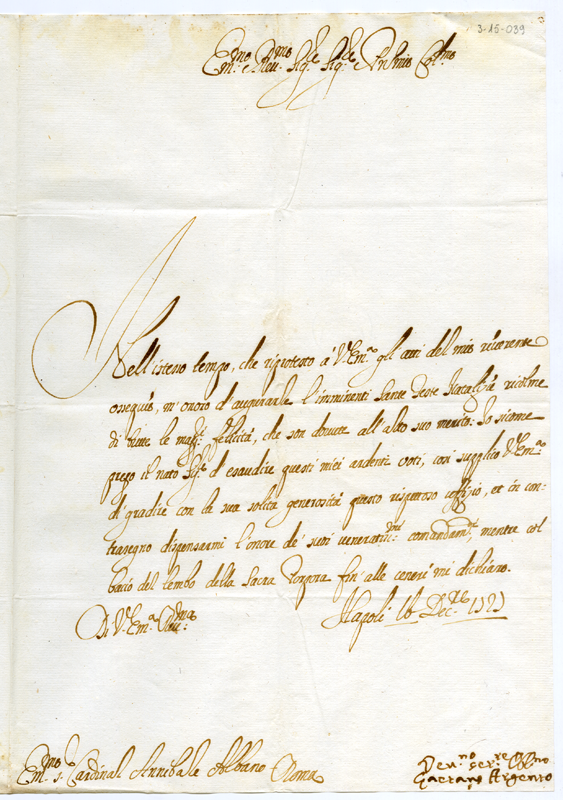 3-15-039
Em.mo e Rev.mo Sig.re Sig.re e Padrone Col.mo
Nell'istesso tempo, che riprotesto à V.ra Em.a gli atti del mio reverente
ossequio, m'onoro d'augurarle l'imminenti Sante Feste Natalizie ricolme
di tutte le magg.ri felicità, che son dovute all'alto suo merito: Io sicome
prego il nato Sig.re d'esaudire questi miei ardenti voti, così supplico V.ra Em.a
di gradire con la sua solita generosità questo rispettoso uffizio, et in con-
trasegno dispensarmi l'onore de' suoi veneratiss.mi comandam.ti, mentre col
bacio del lembo della Sacra Porpora fin' alle ceneri mi dichiaro.
Di V.ra Em.a Rev.ma
Napoli 16 Dic.re
Em.mo S. Cardinal Annibale Albano Roma
Dev.mo ser.re Obl.mo
Gaetano Argento